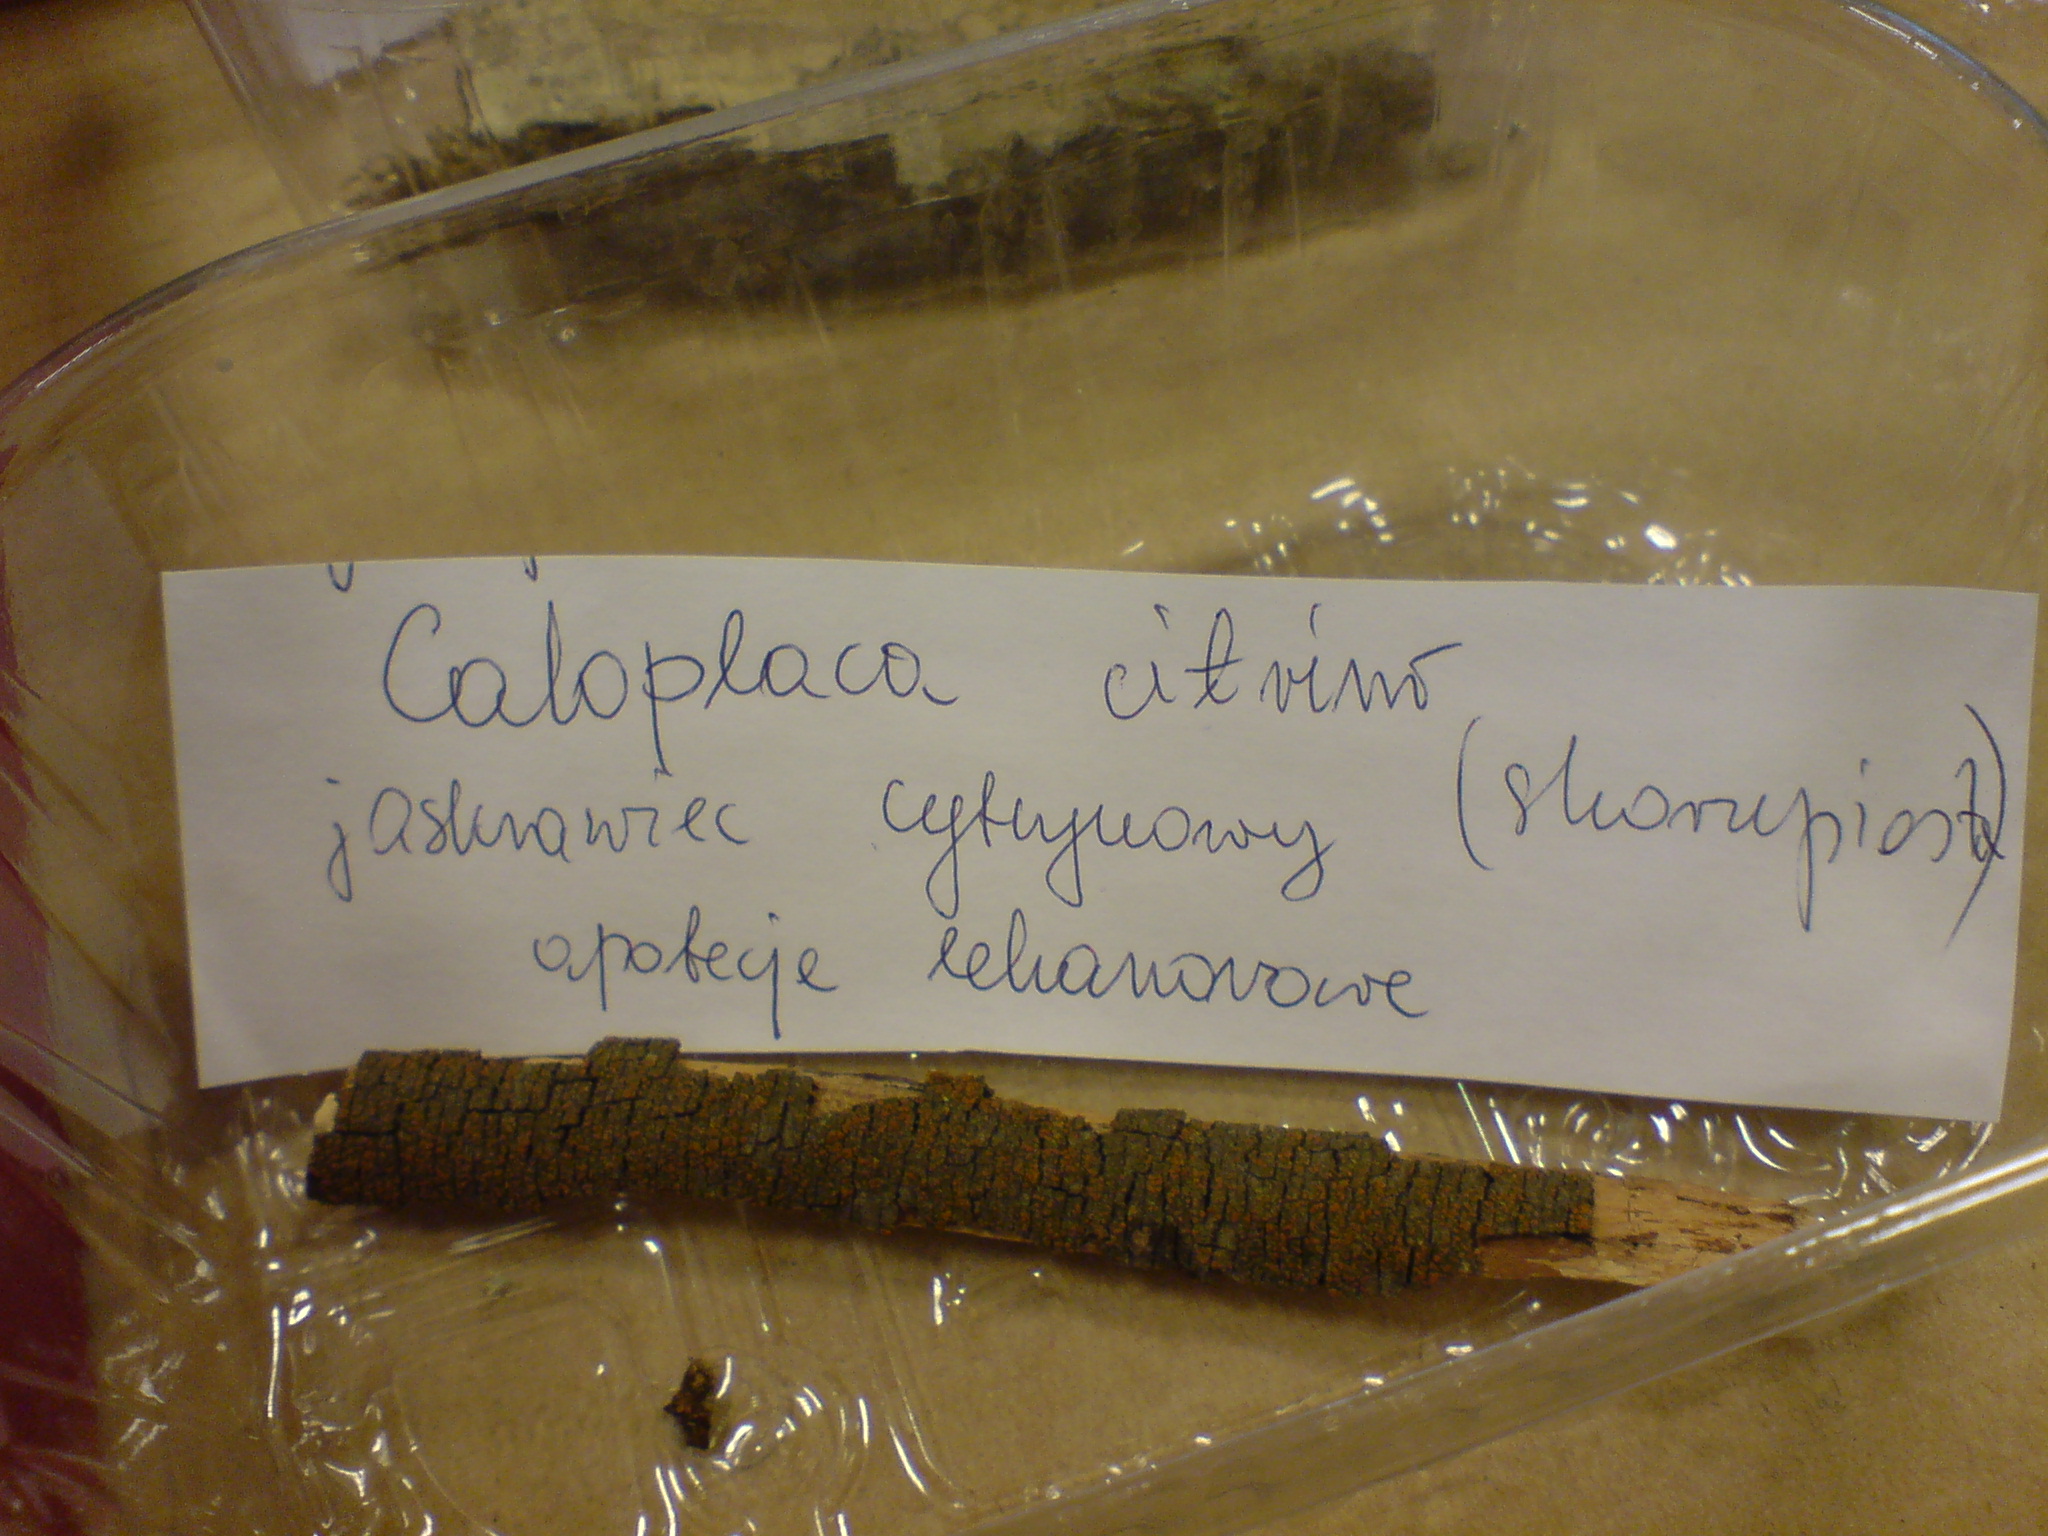 Caloplaca citrina
jaskrawiec cytrynowy (skorupiasta)
apotecje lekanorowe